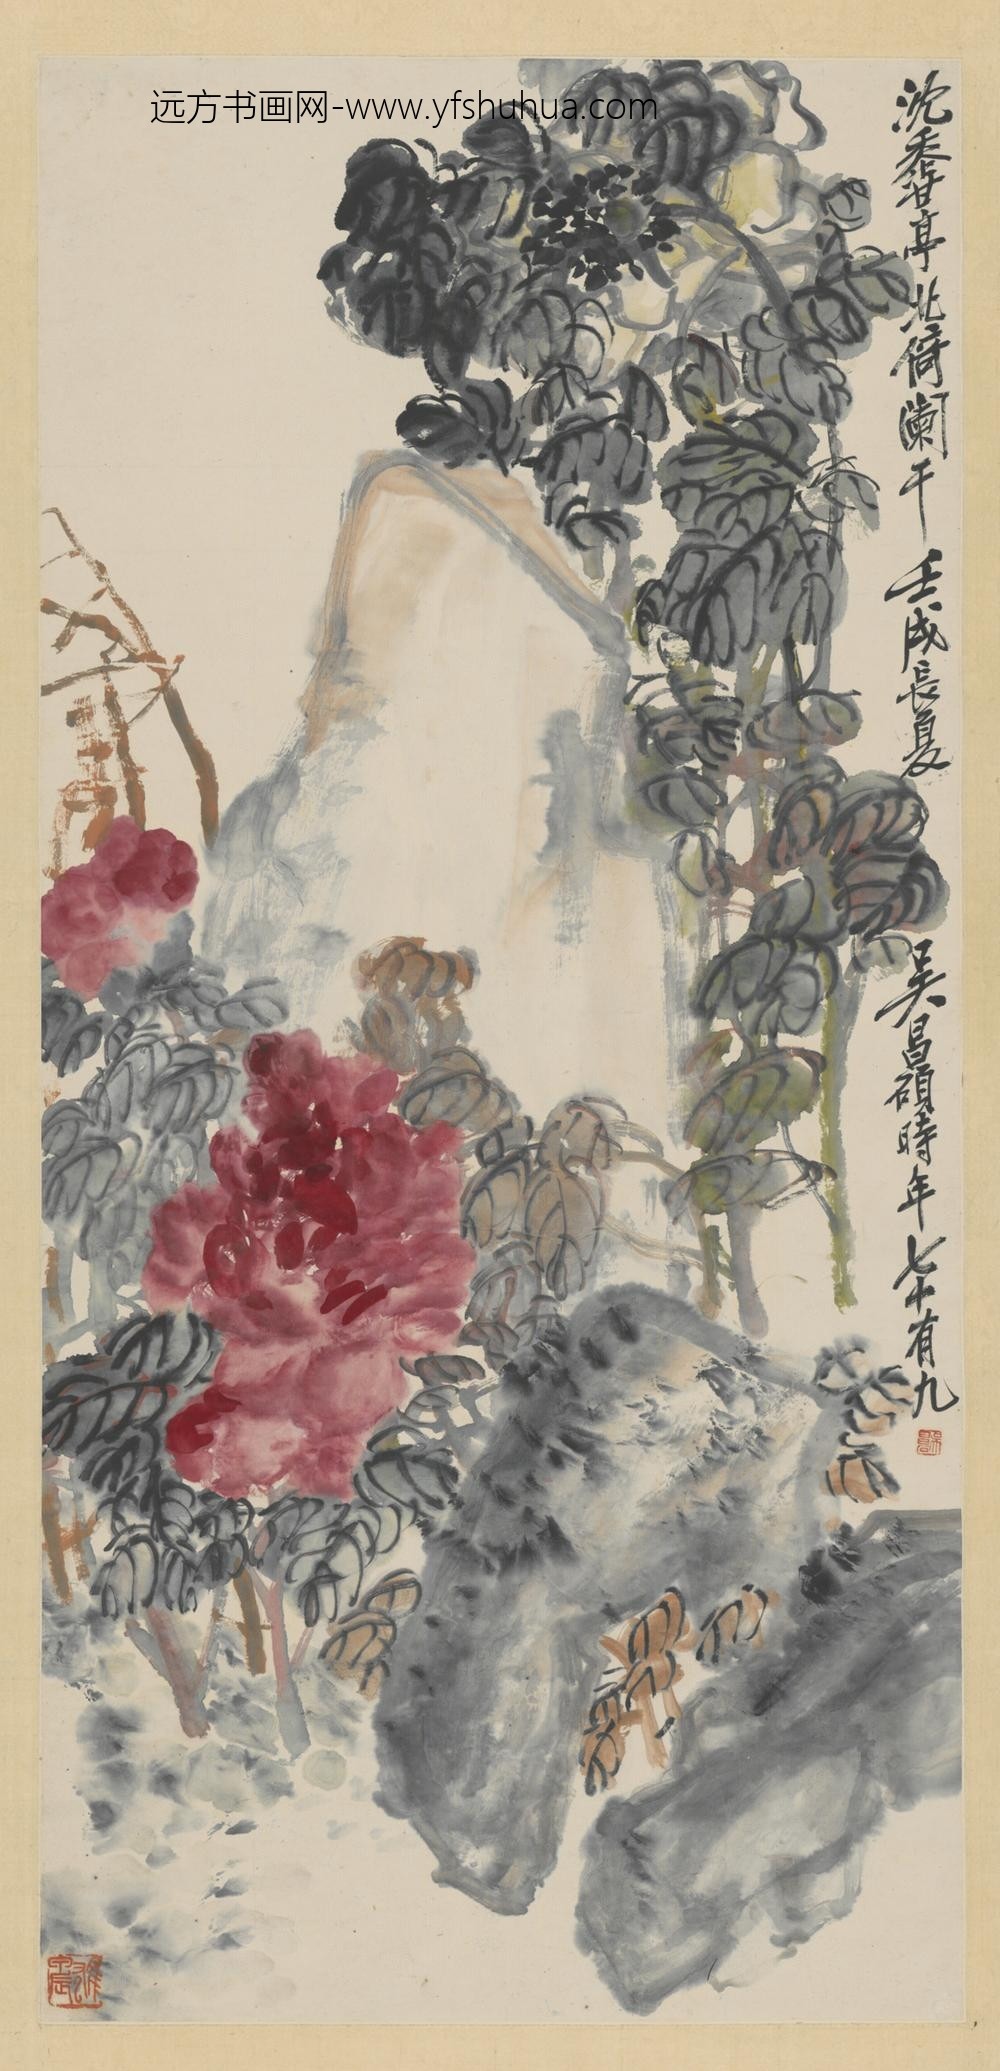 远方书画网-www.yfshuhua.com
沈香亭北倚闌干 壬戌長夏 吳昌碩時年七十有九